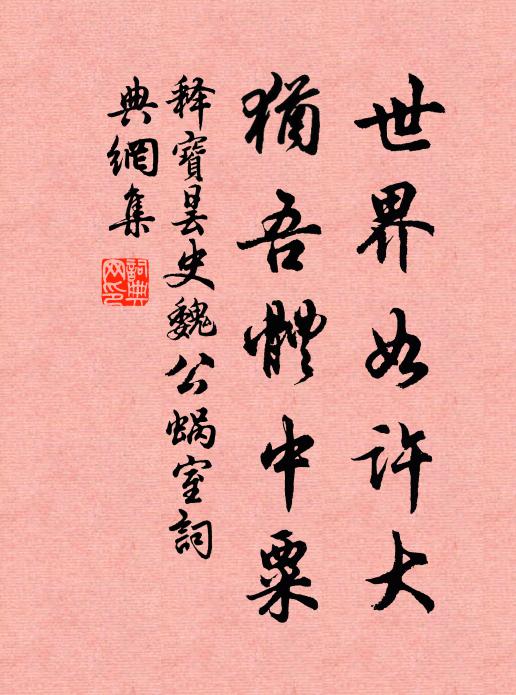 世界如许大
猶吾體中粟
释寶昙史魏公蜗室詞
典網集
詞典網印